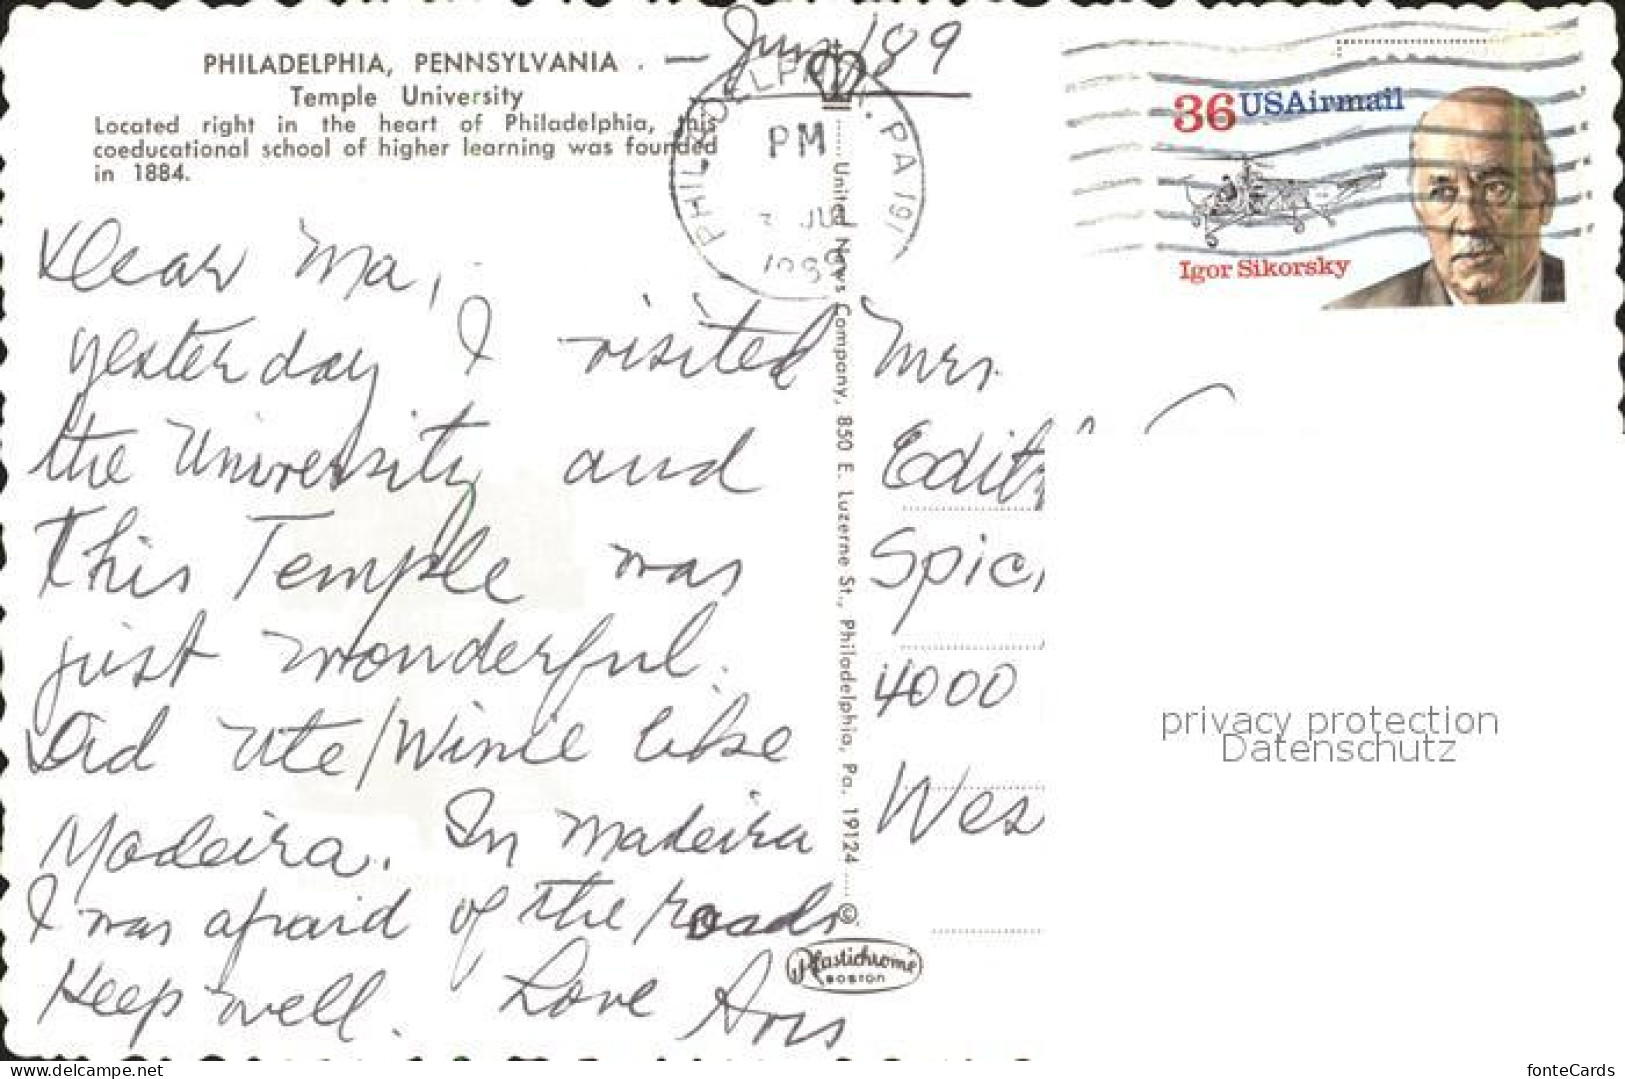 PHILADELPHIA, PENNSYLVANIA
Temple University
Located right in the heart of Philadelphia, this
coeducational school of higher learning was founded
in 1884.
PM
36 USAirmail
Igor Sikorsky
Dear Ma,
yesterday I visited
the University and
this Temple was
just wonderful.
Did Ute/Winie like
Madeira. In Madeira
I was afraid of the roads
Keep well. Love
United News Company, 850 E. Luzerne St., Philadelphia, Pa. 19124
©
Plastichrome
BOSTON
Mrs.
Edith
4000
privacy protection
Datenschutz
www.ansichtskarten-center.de
fonteCards